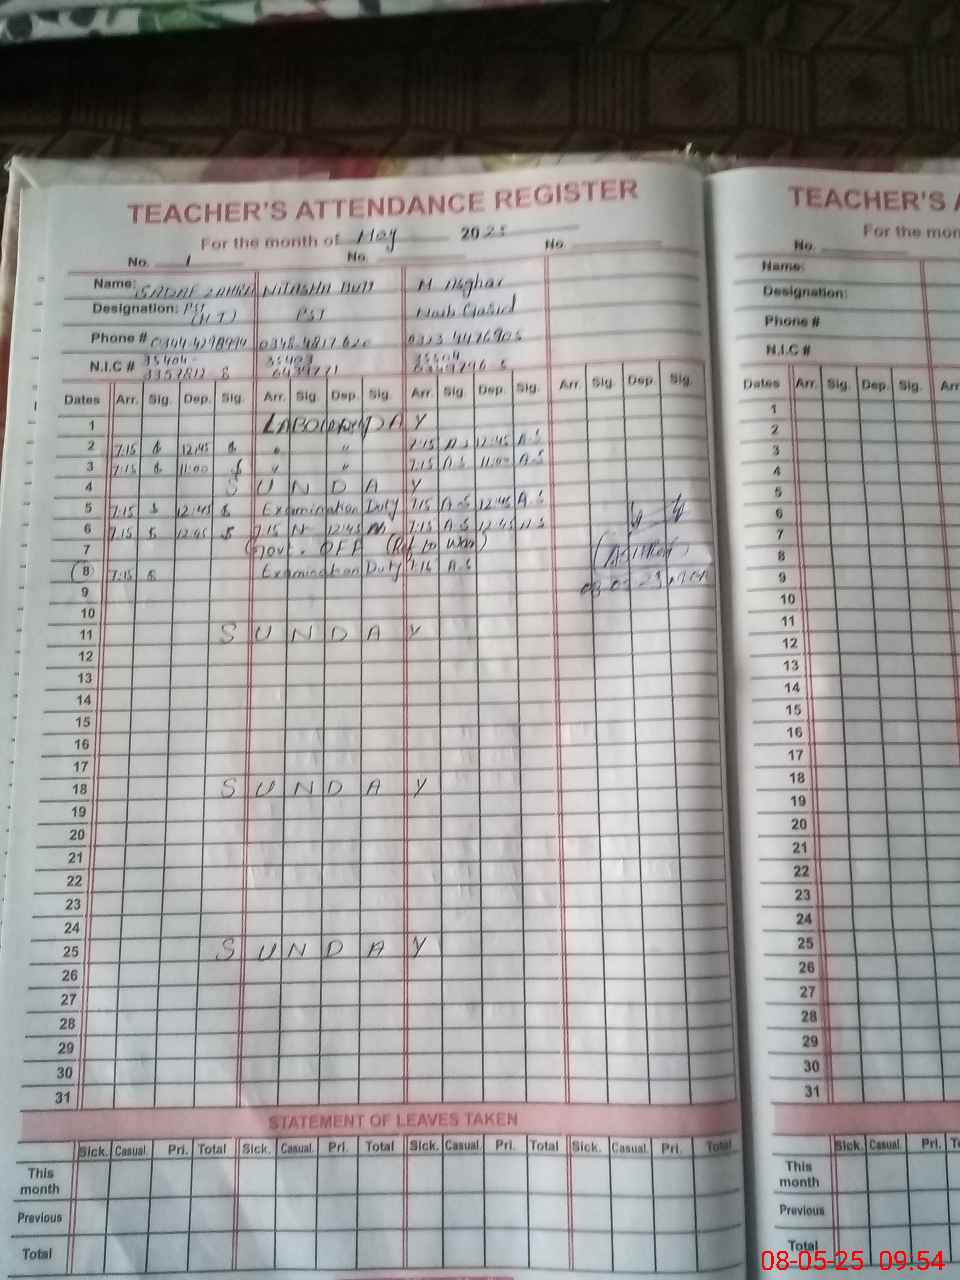 TEACHER'S ATTENDANCE REGISTER
For the month of May 2025
No. 1 No. No.
Name: SADAF ZAHRA NITASHA BUTT M Asghar
Designation: PST (H.T) PST Naib Qasid
Phone #
N.I.C # 35404- 35403 35404
Dates Arr. Sig. Dep. Sig. Arr. Sig. Dep. Sig. Arr. Sig. Dep. Sig. Arr. Sig. Dep. Sig.
1 LABOUR DAY
2 7:15 12:45 " " 7:15 A.S 12:45 A.S
3 7:15 11:00 " " 7:15 A.S 11:00 A.S
4 SUNDAY
5 7:15 12:45 Examination Duty 7:15 A.S 12:45 A.S
6 7:15 12:45 7:15 N 12:45 N 7:15 A.S 12:45 A.S
7 Govt. OFF (Ref to War)
8 7:15 Examination Duty 7:15 A.S
9
10
11 SUNDAY
12
13
14
15
16
17
18 SUNDAY
19
20
21
22
23
24
25 SUNDAY
26
27
28
29
30
31
STATEMENT OF LEAVES TAKEN
Sick. Casual. Pri. Total Sick. Casual. Pri. Total Sick. Casual. Pri. Total Sick. Casual. Pri. Total
This month
Previous
Total
TEACHER'S A
For the mon
No.
Name:
Designation:
Phone #
N.I.C #
Dates Arr. Sig. Dep. Sig. Arr
1
2
3
4
5
6
7
8
9
10
11
12
13
14
15
16
17
18
19
20
21
22
23
24
25
26
27
28
29
30
31
Sick. Casual. Pri.
This month
Previous
Total
08-05-25 09:54